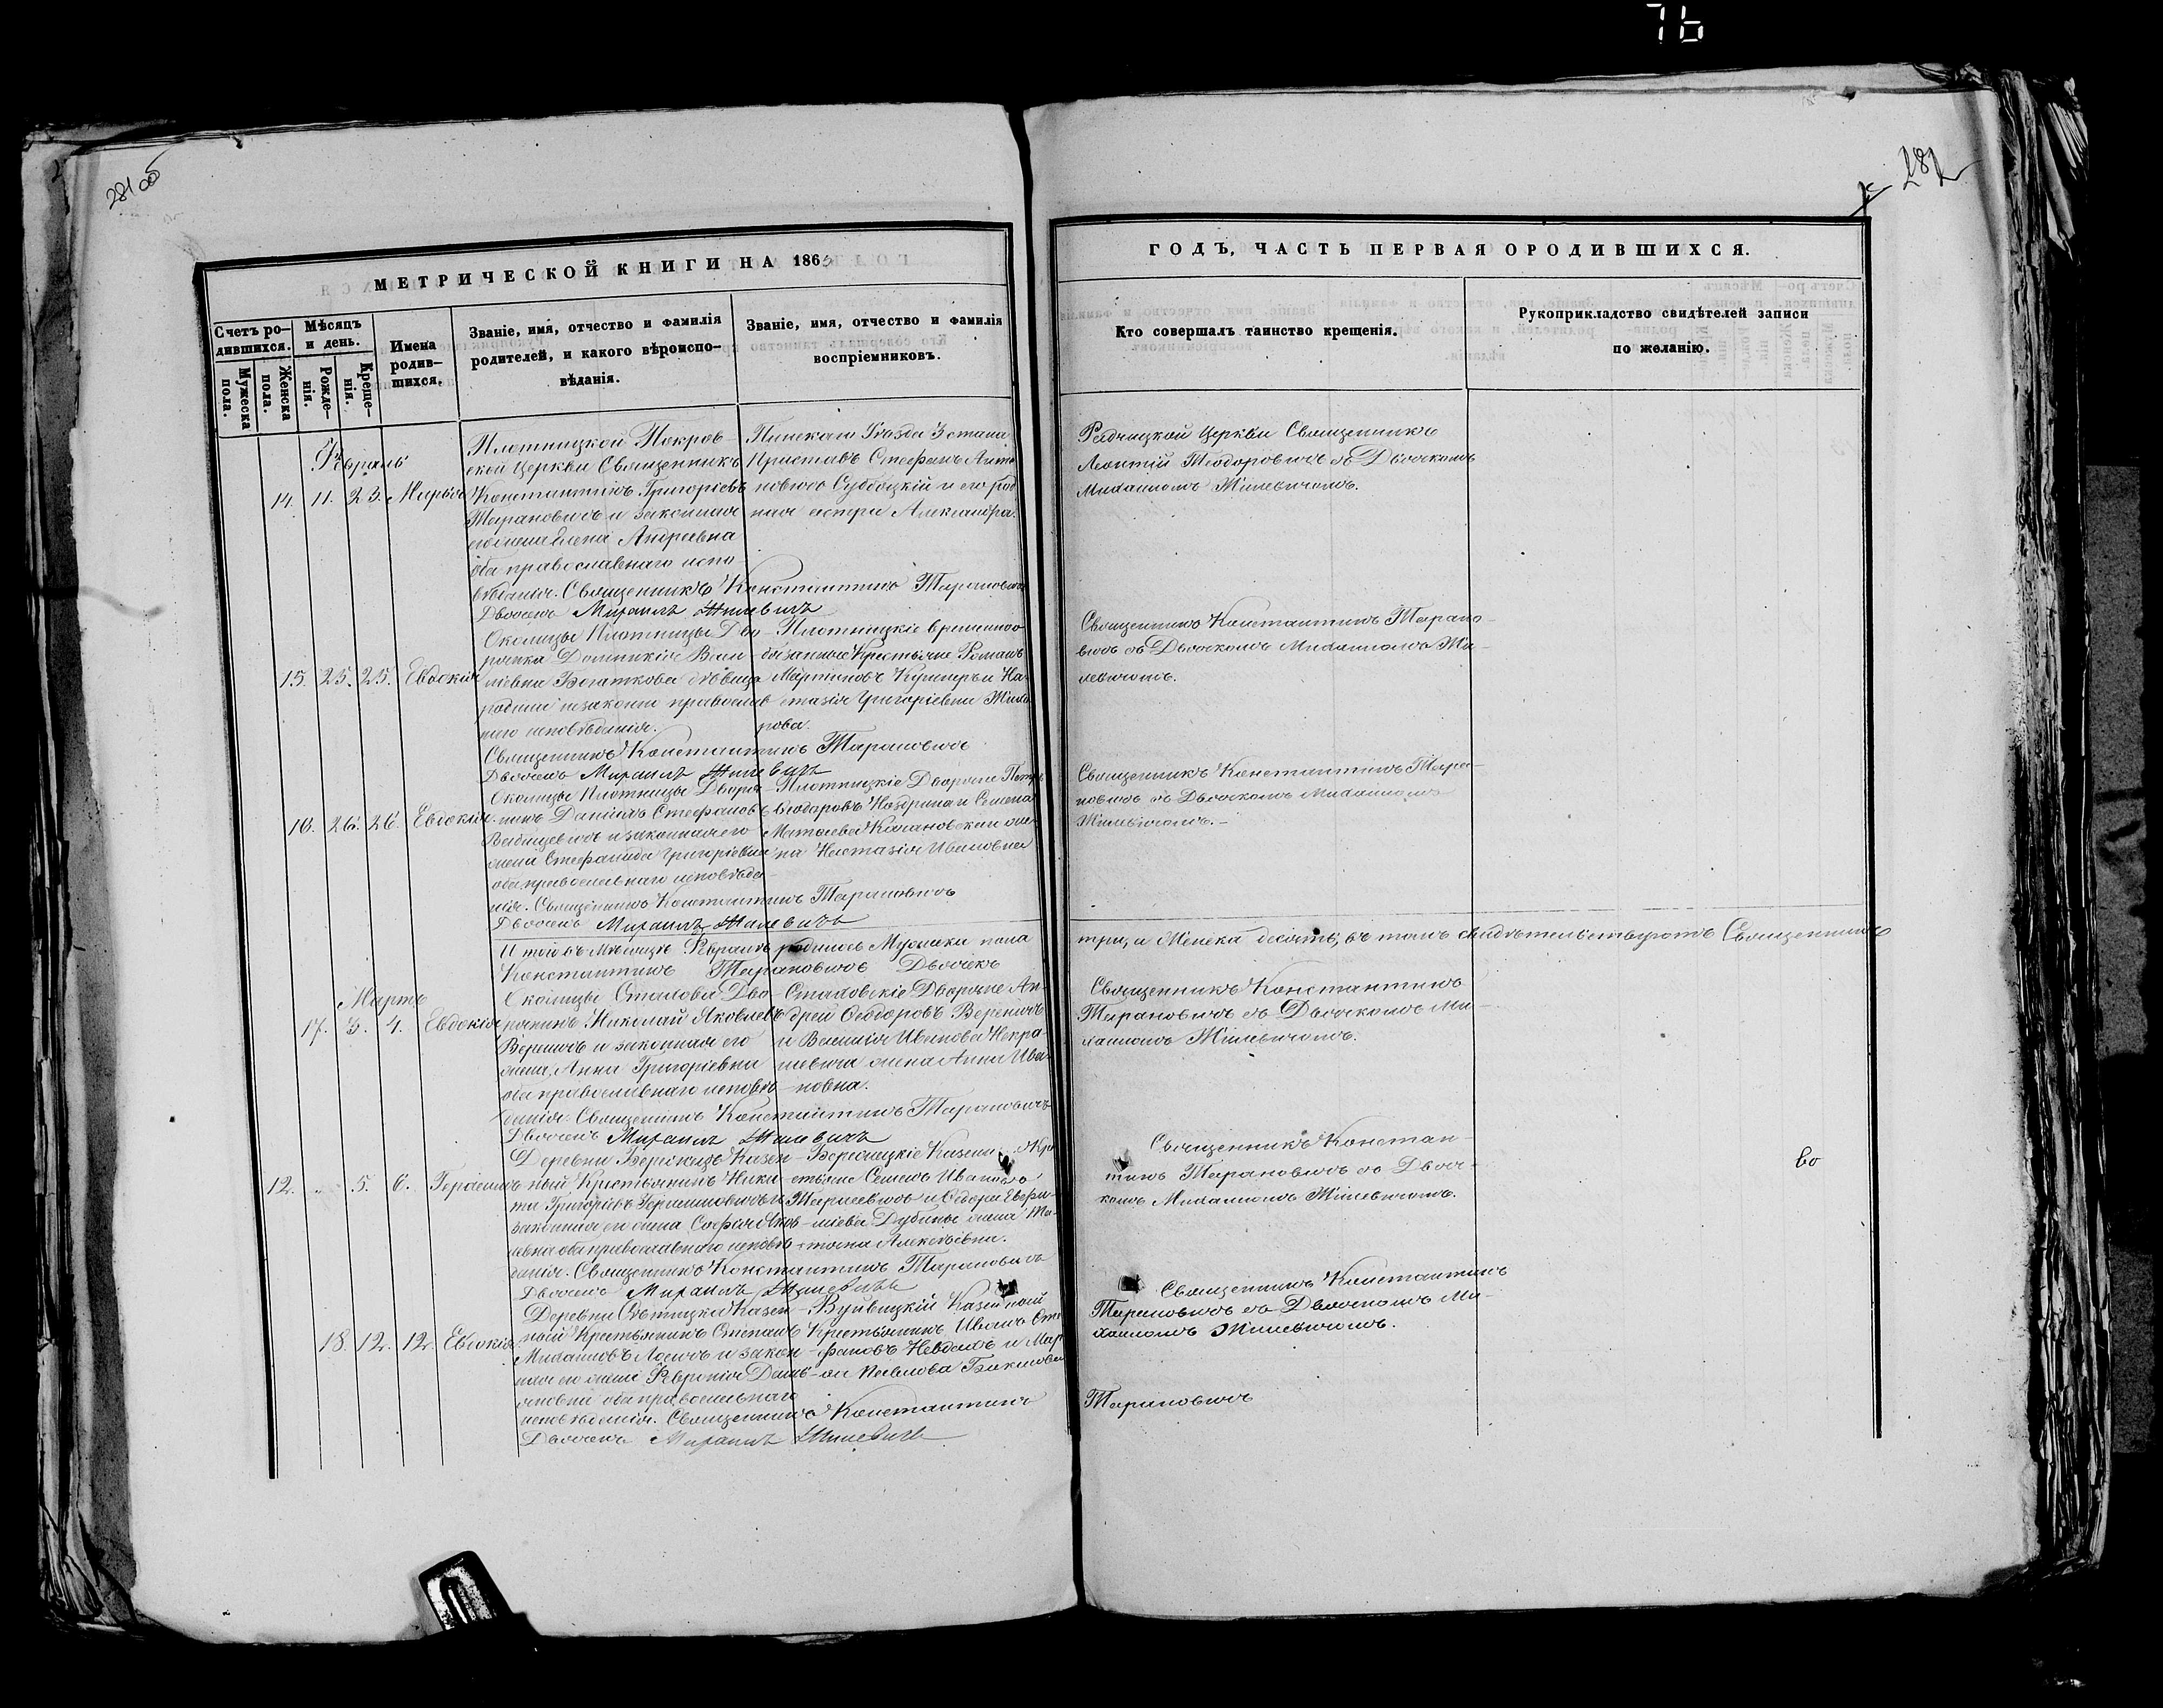 76
281 об
282
МЕТРИЧЕСКОЙ КНИГИ НА 1863
ГОДЪ, ЧАСТЬ ПЕРВАЯ ОРОДИВШИХСЯ.
Счетъ ро-
дившихся.
Мужеска
пола.
Женска
пола.
Мѣсяцъ
и день.
Рожде-
нія.
Креще-
нія.
Имена
родив-
шихся.
Званіе, имя, отчество и фамилія
родителей, и какого вѣроиспо-
вѣданія.
Званіе, имя, отчество и фамилія
воспріемниковъ.
Кто совершалъ таинство крещенія.
Рукоприкладство свидѣтелей записи
по желанію.
Февраль
14. 11. 23. Марія
Плотницкой Покров-
ской Церкви Священникъ
Константинъ Григоріевъ
Тарановичъ и законная
его жена Елена Андреевна
оба православнаго испо-
вѣданія. Священникъ Константинъ Тарановичъ
Дьячекъ Михаилъ Жилевичъ
Пинскаго уѣзда 3 стана
Приставъ Стефанъ Анто-
новъ Суббоцкій и его род-
ная сестра Александра.
Радчицкой Церкви Священникъ
Леонтій Теодоровичъ съ Дьячкомъ
Михаиломъ Жилевичомъ.
15. 25. 25. Евдокія
Околицы Плотницы Дво-
рянка Домникія Васи-
ліевна Богаткова дѣвица
родила незаконно православ-
наго исповѣданія.
Священникъ Константинъ Тарановичъ
Дьячекъ Михаилъ Жилевичъ
Плотницкіе временно о-
бязанные Крестьяне Романъ
Мартиновъ Кушнеръ и На-
стазія Григоріевна
рова.
Священникъ Константинъ Тарано-
вичъ съ Дьячкомъ Михаиломъ Жи-
левичомъ.
16. 26. 26. Евдокія
Околицы Плотницы Дворя-
нинъ Даніилъ Стефановъ
и законная его
жена Стефанида Григоріевна
оба православнаго исповѣда-
нія. Священникъ Константинъ Тарановичъ
Дьячекъ Михаилъ Жилевичъ
Плотницкіе Дворяне Петръ
Ѳеодоровъ Ноздрина и Семена
Матѳеева Качановскаго же-
на Настазія Ивановна
Священникъ Константинъ Тара-
новичъ съ Дьячкомъ Михаиломъ
Жилевичомъ.
Итого въ мѣсяцѣ Февралѣ родилось Мужска пола
три, и Женска десять, въ томъ свидѣтельствуютъ Священникъ
Константинъ Тарановичъ Дьячекъ
Мартъ
17. 3. 4. Евдокія
Околицы Стахова Дво-
рянинъ Николай Яковлевъ
Вереничъ и законная его
жена, Анна Григоріевна
оба православнаго исповѣ-
данія. Священникъ Константинъ Тарановичъ
Дьячекъ Михаилъ Жилевичъ
Стаховскіе Дворяне Ан-
дрей Ѳеодоровъ Вереничъ
и Василія Иванова Некра-
шевича жена Анна Ива-
новна.
Священникъ Константинъ
Тарановичъ съ Дьячкомъ Ми-
хаиломъ Жилевичомъ.
12. " 5. 6. Герасимъ
Деревни Бережцъ Казен-
ный Крестьянинъ Ники-
та Григоріевъ Герасимовичъ и
законная его жена Софія Яков-
левна оба православнаго исповѣ-
данія. Священникъ Константинъ Тарановичъ
Дьячекъ Михаилъ Жилевичъ
Бережецкіе Казенн. Кре-
стьяне Семенъ Ивановъ
Тарасевичъ и Ѳедора Евфи-
міева Дубины жена Та-
тіана Алексѣевна.
Священникъ Констан-
тинъ Тарановичъ съ Дьяч-
комъ Михаиломъ Жилевичомъ.
во
18. 12. 12. Евдокія
Казен-
ный Крестьянинъ Степанъ
Михаиловъ Лосичъ и закон-
ная его жена Февронія Дані-
иловна оба православнаго
исповѣданія. Священникъ Константинъ
Дьячекъ Михаилъ Жилевичъ
Вуйвицкій Казенный
Крестьянинъ Иванъ Сте-
фановъ Невдахъ и Мар-
ѳа Павлова
Священникъ Константинъ
Тарановичъ съ Дьячкомъ Ми-
хаиломъ Жилевичомъ.
Тарановичъ